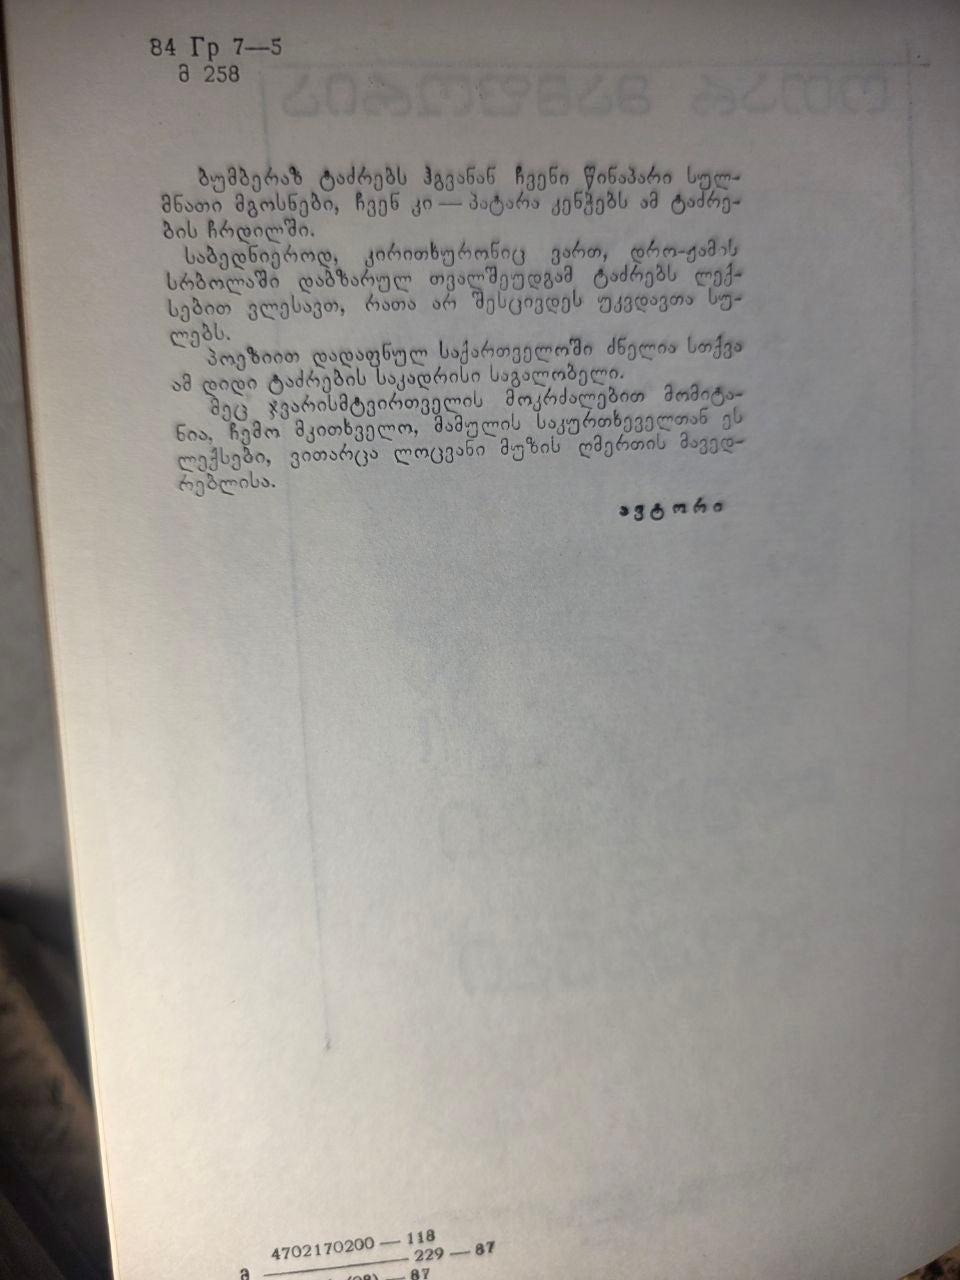 84 Гр 7—5
მ 258
ბუმბერაზ ტაძრებს ჰგვანან ჩვენი წინაპარი სულ-
მნათი მგოსნები, ჩვენ კი — პატარა კენჭებს ამ ტაძრე-
ბის ჩრდილში.
საბედნიეროდ, კირითხურონიც ვართ, დრო-ჟამის
სრბოლაში დაბზარულ თვალშეუდგამ ტაძრებს ლექ-
სებით ვლესავთ, რათა არ შესცივდეს უკვდავთა სუ-
ლებს.
პოეზიით დადაფნულ საქართველოში ძნელია სთქვა
ამ დიდი ტაძრების საკადრისი საგალობელი.
მეც ჯვარისმტვირთველის მოკრძალებით მომიტა-
ნია, ჩემო მკითხველო, მამულის საკურთხეველთან ეს
ლექსები, ვითარცა ლოცვანი მუზის ღმერთის მავედ-
რებლისა.
ავტორი
4702170200 — 118
229 — 87
— 87